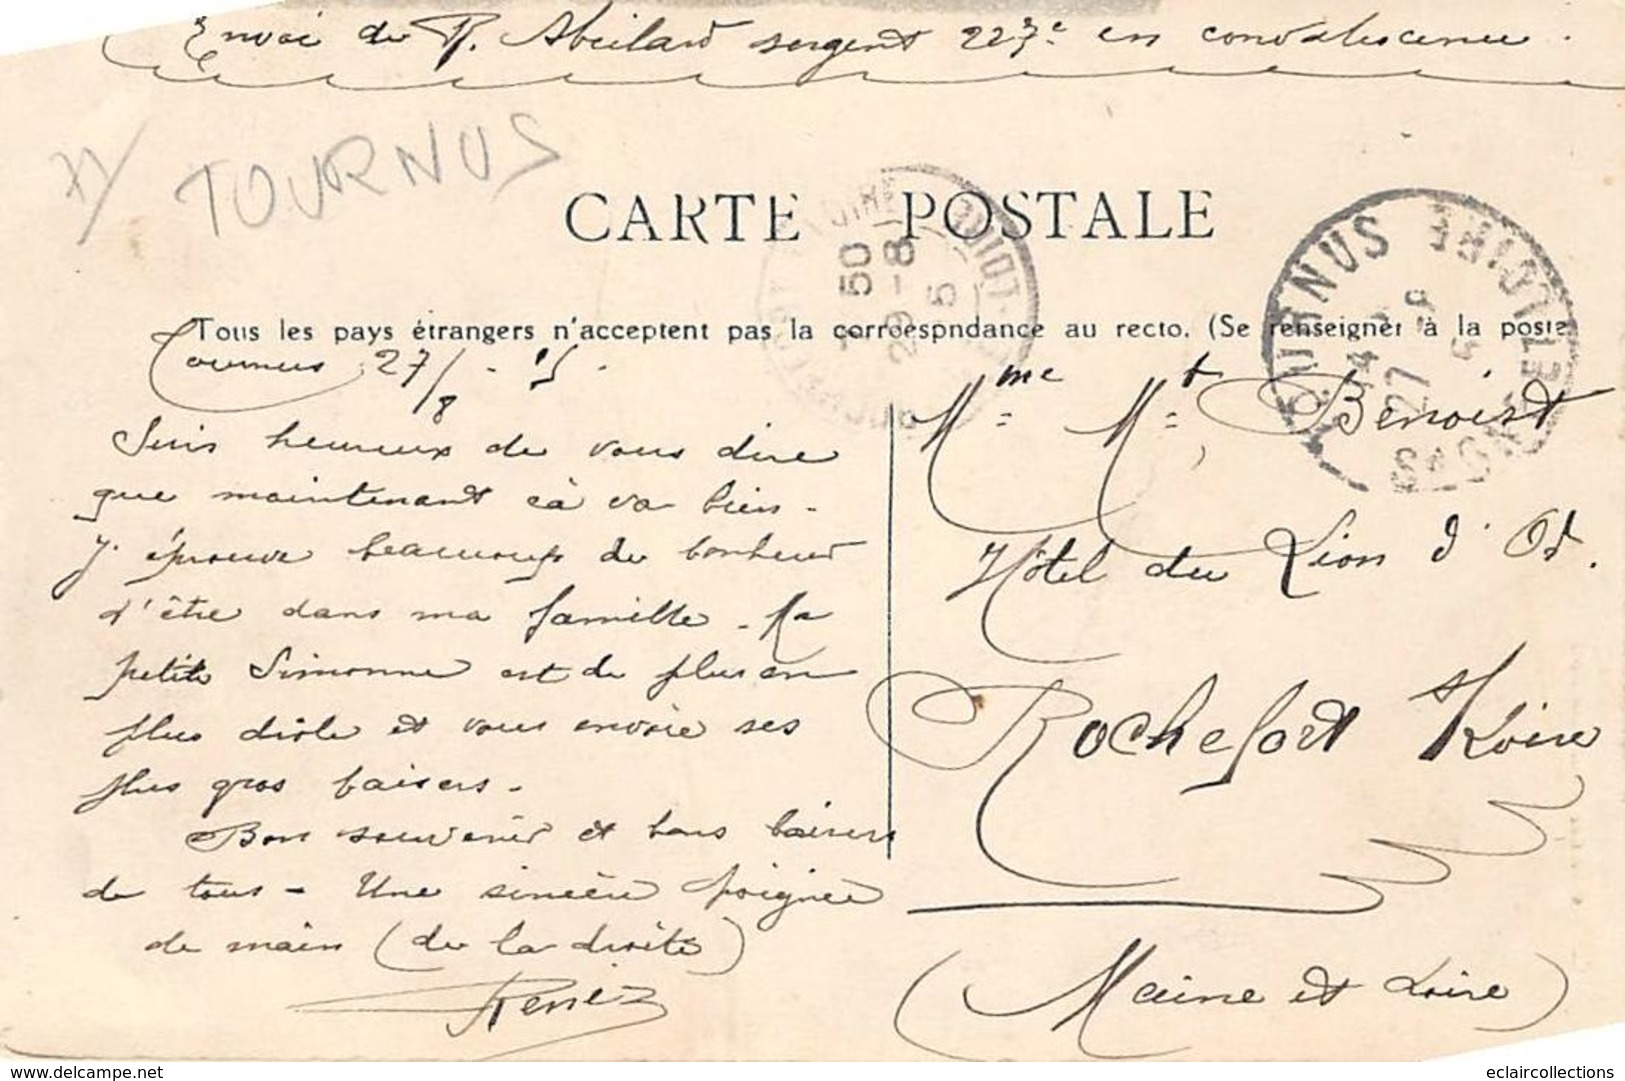 Envoi de R. Abeilard sergent 227e en convalescence.
71/ TOURNUS
CARTE POSTALE
Tous les pays étrangers n'acceptent pas la corroespndance au recto. (Se renseigner à la poste
TOURNUS SAONE ET LOIRE
27
7 50
29-8
15
Tournus 27/8 - 15.
Suis heureux de vous dire
que maintenant cà va bien -
J'éprouve beaucoup de bonheur
d'être dans ma famille - Ma
petite Simonne est de plus en
plus drôle et vous envoie ses
plus gros baisers -
Bon souvenir et bons baisers
de tous - Une sincère poignée
de main (de la droite)
René
Mme Mt Benoist
Hôtel du Lion d'Or.
Rochefort s/Loire
(Maine et Loire)
delcampe.net
eclaircollections